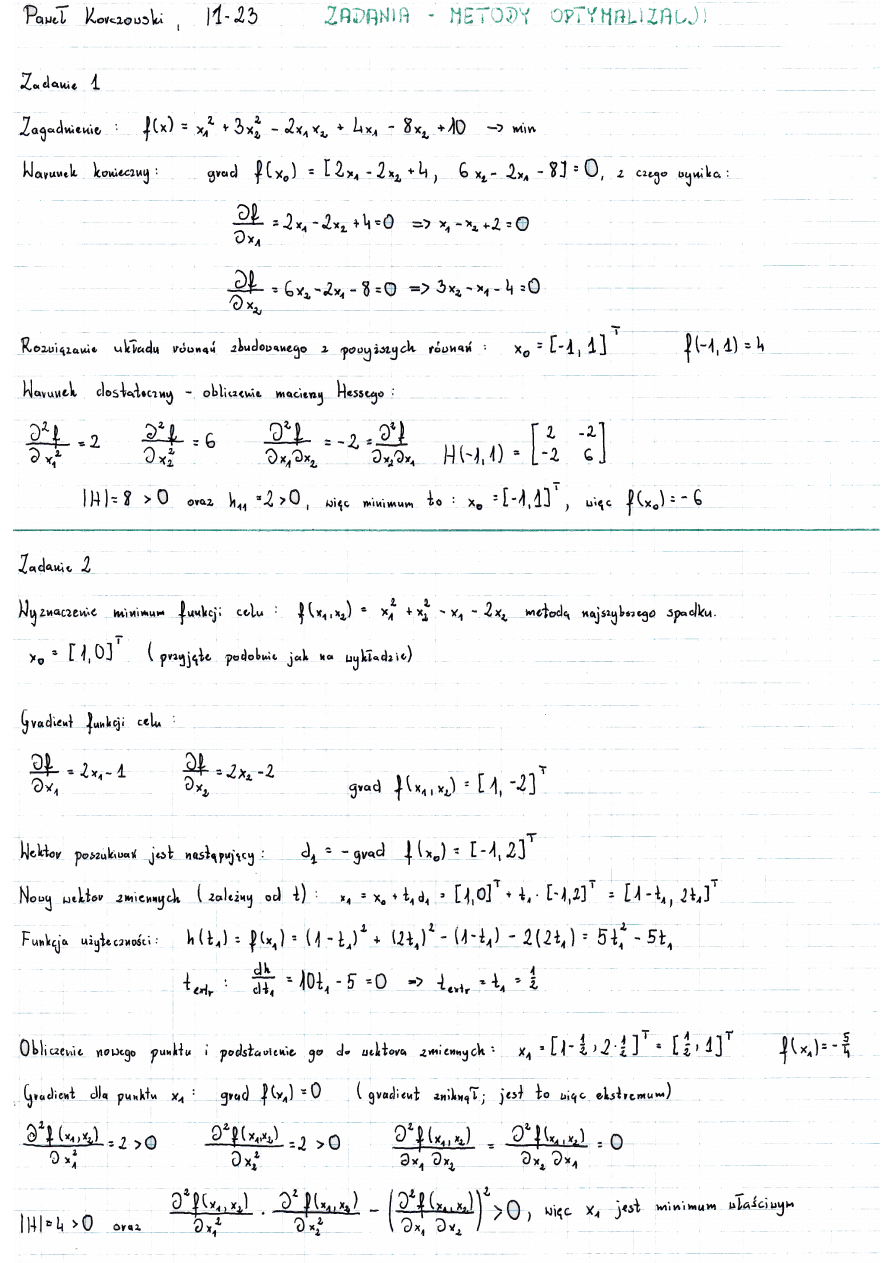 Paweł Korczowski, I1-23 ZADANIA - METODY OPTYMALIZACJI
Zadanie 1
Zagadnienie : f(x) = x₁² + 3x₂² - 2x₁x₂ + 4x₁ - 8x₂ + 10 -> min
Warunek konieczny : grad f(x₀) = [2x₁ - 2x₂ + 4, 6x₂ - 2x₁ - 8] = 0, z czego wynika :
∂f/∂x₁ = 2x₁ - 2x₂ + 4 = 0 => x₁ - x₂ + 2 = 0
∂f/∂x₂ = 6x₂ - 2x₁ - 8 = 0 => 3x₂ - x₁ - 4 = 0
Rozwiązanie układu równań zbudowanego z powyższych równań : x₀ = [-1, 1]ᵀ f(-1, 1) = 4
Warunek dostateczny - obliczenie macierzy Hessego :
∂²f/∂x₁² = 2 ∂²f/∂x₂² = 6 ∂²f/∂x₁∂x₂ = -2 = ∂²f/∂x₂∂x₁ H(-1, 1) = [2 -2; -2 6]
|H| = 8 > 0 oraz h₁₁ = 2 > 0, więc minimum to : x₀ = [-1, 1]ᵀ, więc f(x₀) = -6
Zadanie 2
Wyznaczenie minimum funkcji celu : f(x₁, x₂) = x₁² + x₂² - x₁ - 2x₂ metodą najszybszego spadku.
x₀ = [1, 0]ᵀ (przyjęte podobnie jak na wykładzie)
Gradient funkcji celu :
∂f/∂x₁ = 2x₁ - 1 ∂f/∂x₂ = 2x₂ - 2 grad f(x₁, x₂) = [1, -2]ᵀ
Wektor poszukiwań jest następujący : d₁ = - grad f(x₀) = [-1, 2]ᵀ
Nowy wektor zmiennych (zależny od t) : x₁ = x₀ + t₁d₁ = [1, 0]ᵀ + t₁ · [-1, 2]ᵀ = [1 - t₁, 2t₁]ᵀ
Funkcja użyteczności : h(t₁) = f(x₁) = (1 - t₁)² + (2t₁)² - (1 - t₁) - 2(2t₁) = 5t₁² - 5t₁
t_extr : dh/dt₁ = 10t₁ - 5 = 0 => t_extr = t₁ = 1/2
Obliczenie nowego punktu i podstawienie go do wektora zmiennych : x₁ = [1 - 1/2, 2 · 1/2]ᵀ = [1/2, 1]ᵀ f(x₁) = -5/4
Gradient dla punktu x₁ : grad f(x₁) = 0 (gradient zniknął; jest to więc ekstremum)
∂²f(x₁, x₂)/∂x₁² = 2 > 0 ∂²f(x₁, x₂)/∂x₂² = 2 > 0 ∂²f(x₁, x₂)/∂x₁ ∂x₂ = ∂²f(x₁, x₂)/∂x₂ ∂x₁ = 0
|H| = 4 > 0 oraz ∂²f(x₁, x₂)/∂x₁² · ∂²f(x₁, x₂)/∂x₂² - (∂²f(x₁, x₂)/∂x₁ ∂x₂)² > 0, więc x₁ jest minimum właściwym